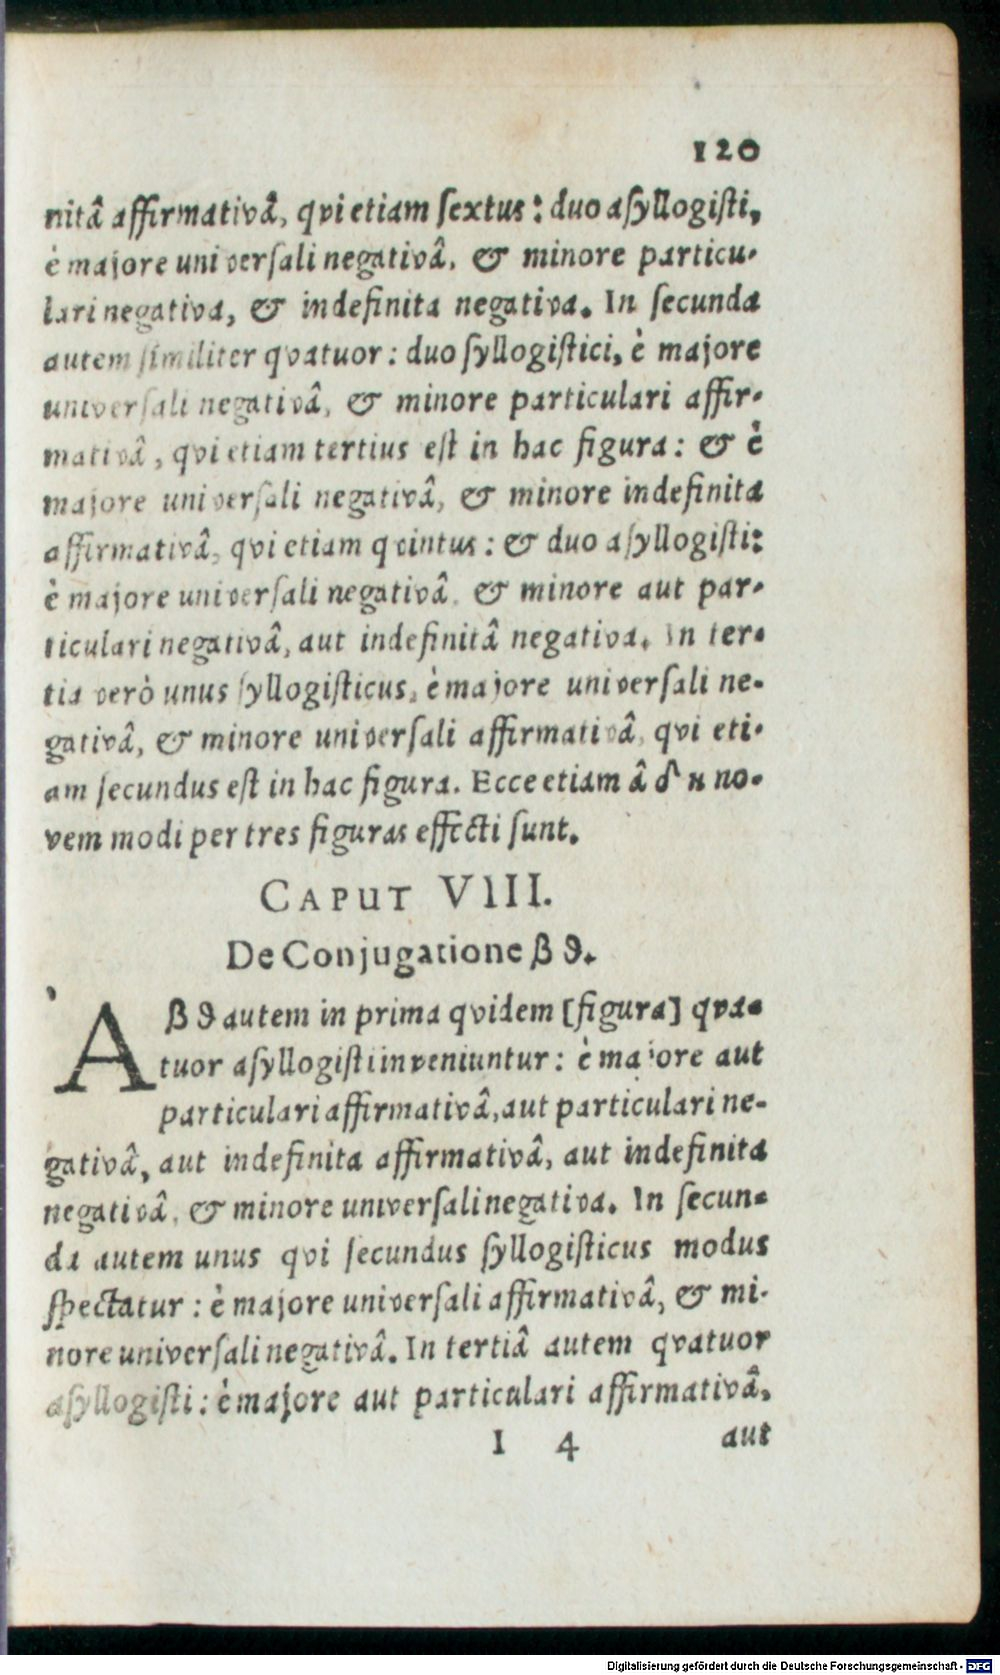 120
nitâ affirmativâ, qvi etiam sextus: duo asyllogisti,
è majore universali negativâ, & minore particu-
lari negativa, & indefinita negativa. In secunda
autem similiter qvatuor: duo syllogistici, è majore
universali negativâ, & minore particulari affir-
mativâ, qvi etiam tertius est in hac figura: & è
majore universali negativâ, & minore indefinita
affirmativâ, qvi etiam qvintus: & duo asyllogisti:
è majore universali negativâ, & minore aut par-
ticulari negativâ, aut indefinitâ negativa. In ter-
tia verò unus syllogisticus, è majore universali ne-
gativâ, & minore universali affirmativâ, qvi eti-
am secundus est in hac figura. Ecce etiam â δ ϰ no-
vem modi per tres figuras effecti sunt.
CAPUT VIII.
De Conjugatione β ϑ.
'A β ϑ autem in prima qvidem [figura] qva-
tuor asyllogisti inveniuntur: è majore aut
particulari affirmativâ, aut particulari ne-
gativâ, aut indefinita affirmativâ, aut indefinita
negativâ, & minore universali negativa. In secun-
da autem unus qvi secundus syllogisticus modus
spectatur: è majore universali affirmativâ, & mi-
nore universali negativâ. In tertiâ autem qvatuor
asyllogisti: è majore aut particulari affirmativâ,
I 4 aut
Digitalisierung gefördert durch die Deutsche Forschungsgemeinschaft - DFG